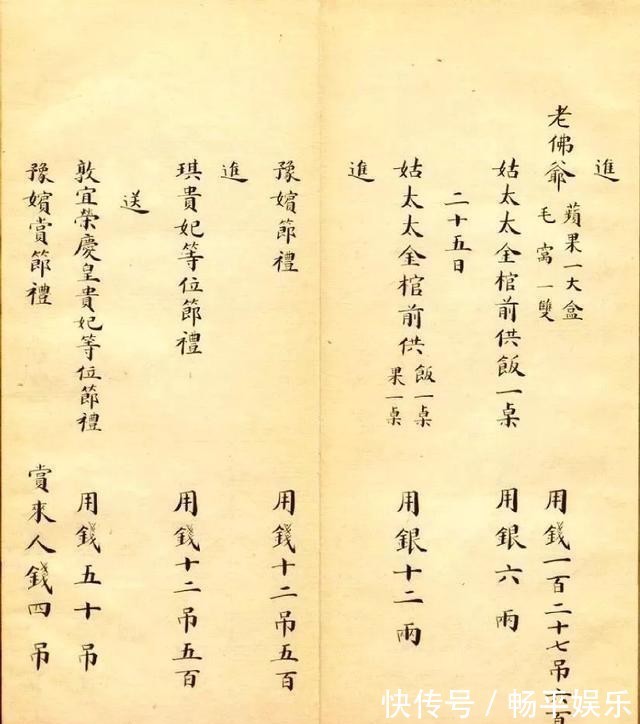 進
老佛爺 蘋果一大盒 毛窩一雙 用錢一百二十七吊六百
姑太太全棺前供飯一桌 用銀六兩
二十五日
姑太太全棺前供 飯一桌 果一桌 用銀十二兩
進
豫嬪節禮 用錢十二吊五百
進
琪貴妃等位節禮 用錢十二吊五百
送
敦宜榮慶皇貴妃等位節禮 用錢五十吊
豫嬪賞節禮 賞來人錢四吊
快传号/畅平娱乐